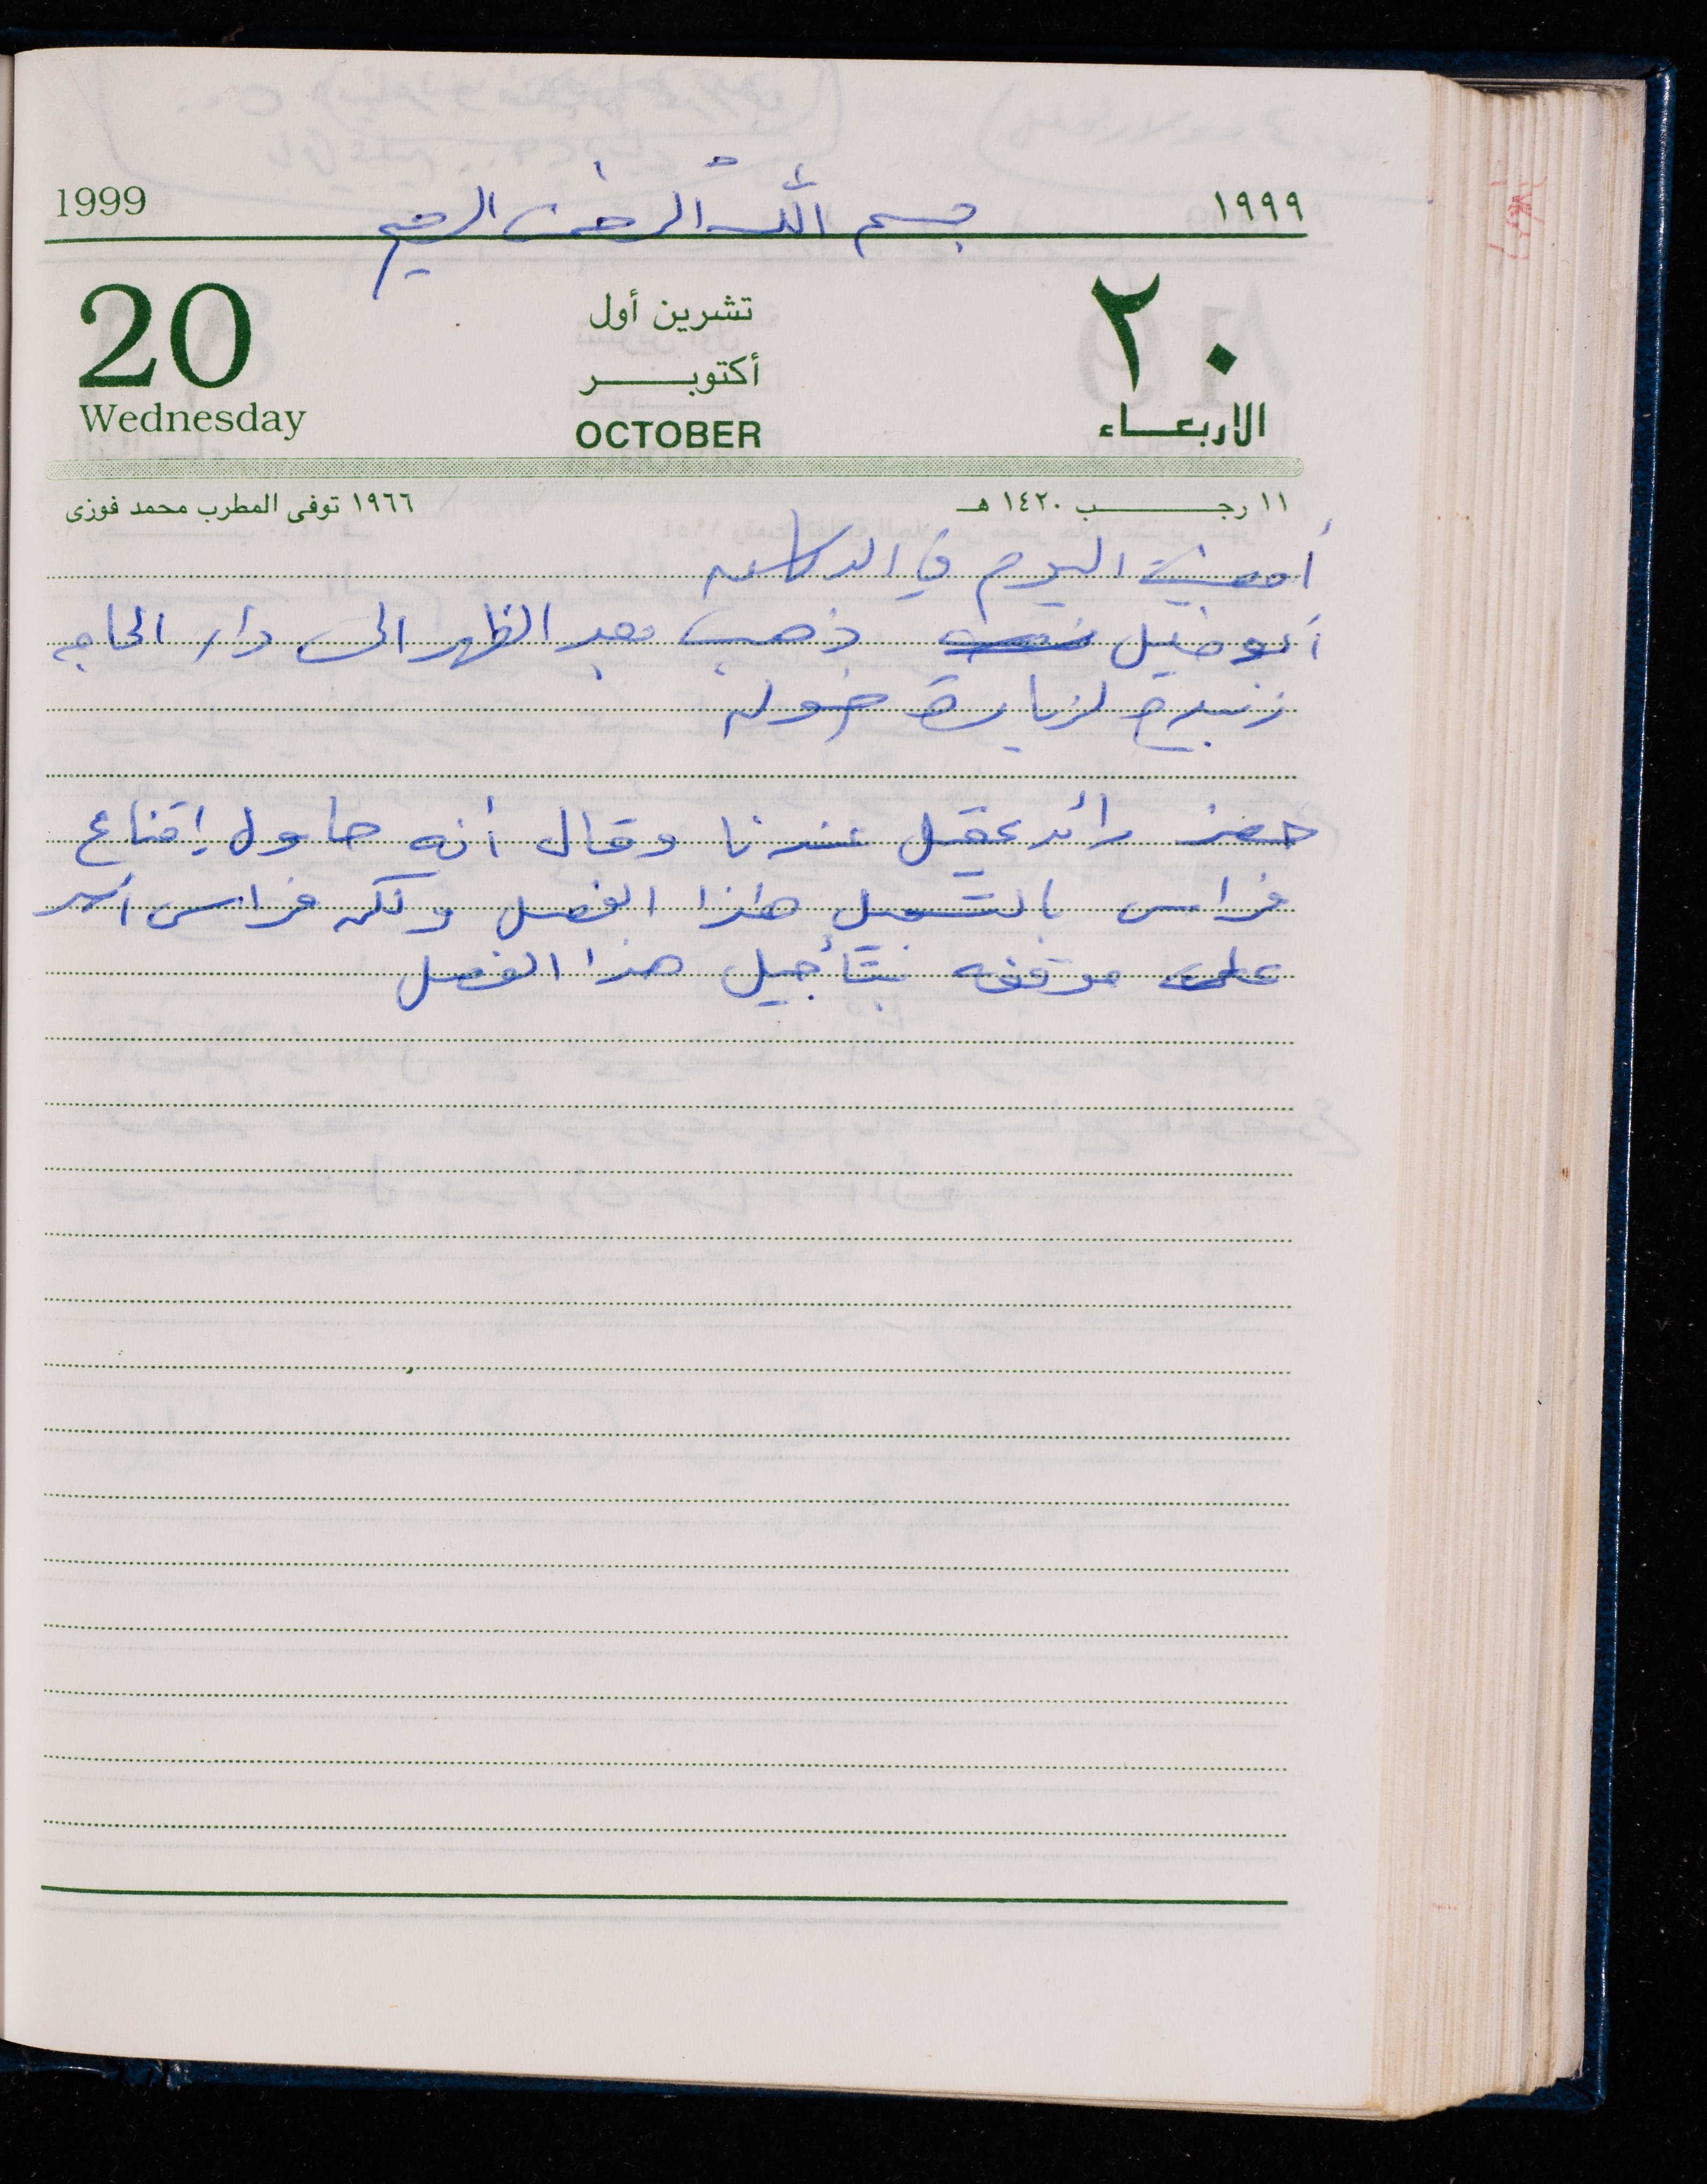 1999 بسم الله الرحمن الرحيم ١٩٩٩
20 تشرين أول ٢٠
أكتوبر
Wednesday OCTOBER الاربعاء
١١ رجب ١٤٢٠ هـ ١٩٦٦ توفى المطرب محمد فوزى
أمضيت اليوم في الدكان
أبو خليل ذهب بعد الظهر الى دار الحاجه
زبيدة لزيارة خوله
حضر رائد عقيل عندنا وقال أنه حاول إقناع
فراس بالتسجيل هذا الفصل ولكن فراس أصر
على موقفه بتأجيل هذا الفصل